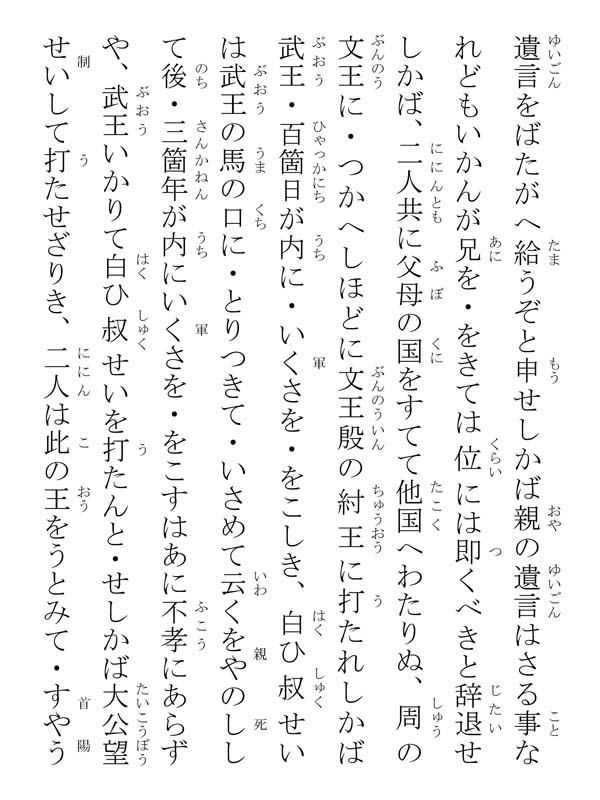 遺言をばたがへ給うぞと申せしかば親の遺言はさる事な
れどもいかんが兄を・をきては位には即くべきと辞退せ
しかば、二人共に父母の国をすてて他国へわたりぬ、周の
文王に・つかへしほどに文王殷の紂王に打たれしかば
武王・百箇日が内に・いくさを・をこしき、白ひ叔せい
は武王の馬の口に・とりつきて・いさめて云くをやのしし
て後・三箇年が内にいくさを・をこすはあに不孝にあらず
や、武王いかりて白ひ叔せいを打たんと・せしかば大公望
せいして打たせざりき、二人は此の王をうとみて・すやう